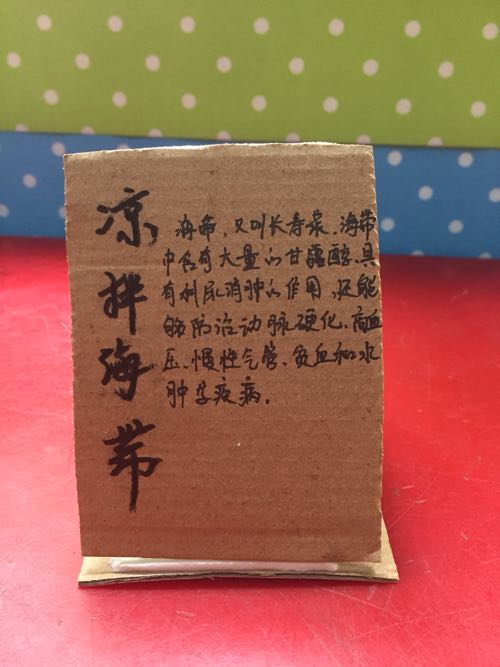 凉拌海带
海带，又叫长寿菜，海带
中含有大量的甘露醇，具
有利尿消肿的作用，还能
够防治动脉硬化、高血
压、慢性气管、贫血和水
肿等疾病。